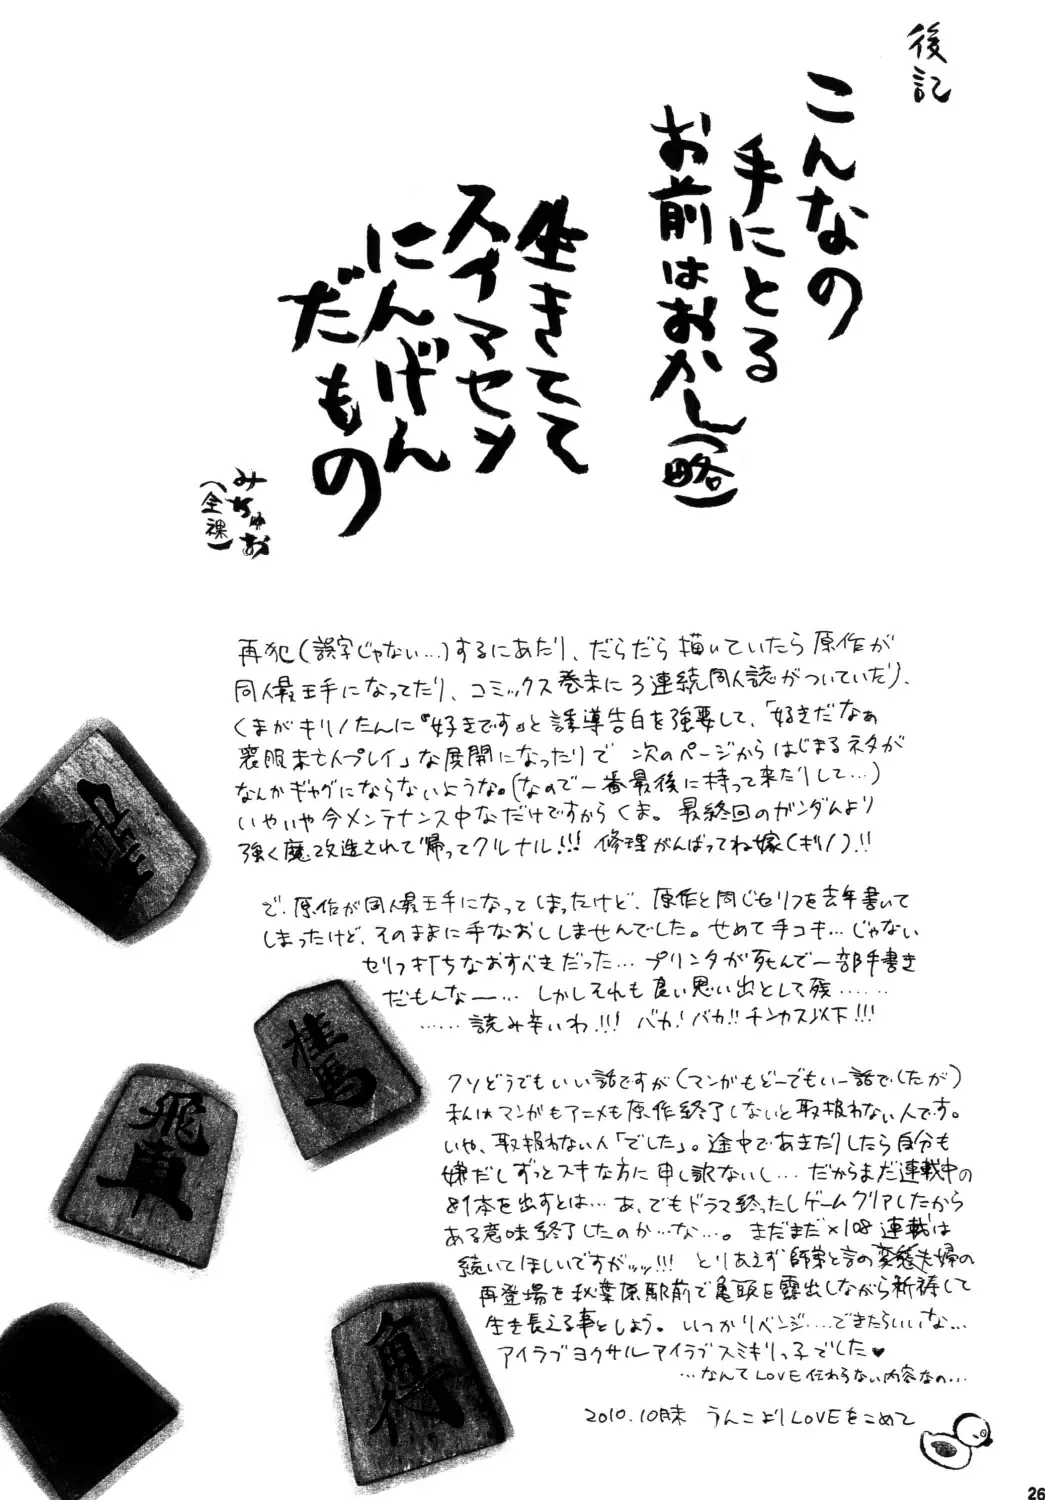 後記
こんなの
手にとる
お前はおかし(略)
生きてて
スイマセン
にんげん
だもの
みちゅお
(全裸)
再犯(誤字じゃない…)するにあたり、だらだら描いていたら原作が
同人最王手になってたり、コミックス巻末に3連続同人誌がついていたり、
くまがキリノたんに『好きです』と誘導告白を強要して、「好きだなぁ
喪服未亡人プレイ」な展開になったりで 次のページからはじまるネタが
なんかギャグにならないような。(なので一番最後に持って来たりして…)
いやいや今メンテナンス中なだけですからくま。最終回のガンダムより
強く魔改造されて帰ってクルナル!!! 修理がんばってね嫁(ギリノ)!!
で、原作が同人最王手になってしまったけど、原作と同じセリフを去年書いて
しまったけど、そのままに手なおししませんでした。せめて手コキ…じゃない
セリフ打ちなおすべきだった…プリンタが死んで一部手書き
だもんなー…しかしそれも良い思い出として残……
……読み辛いわ!!! バカ!バカ!!チンカス以下!!!
クソどうでもいい話ですが(マンガもどーでもいー話でしたが)
私はマンガもアニメも原作終了しないと取扱わない人です。
いや、取扱わない人「でした」。途中であきたりしたら自分も
嫌だしずっとスキな方に申し訳ないし…だからまだ連載中の
81本を出すとは…あ、でもドラマ終ったしゲームクリアしたから
ある意味終了したのか…な…。まだまだ×108連載は
続いてほしいですがッッ!!! とりあえず師弟と言の変態夫婦の
再登場を秋葉原駅前で亀頭を露出しながら祈祷して
生き長える事としよう。いつかリベンジ……できたらいいな…
アイラブヨクサルアイラブスミギリっ子でした♥
…なんてLOVE伝わらない内容なの…
2010.10月末 うんこよりLOVEをこめて
飛車
桂馬
角行
26